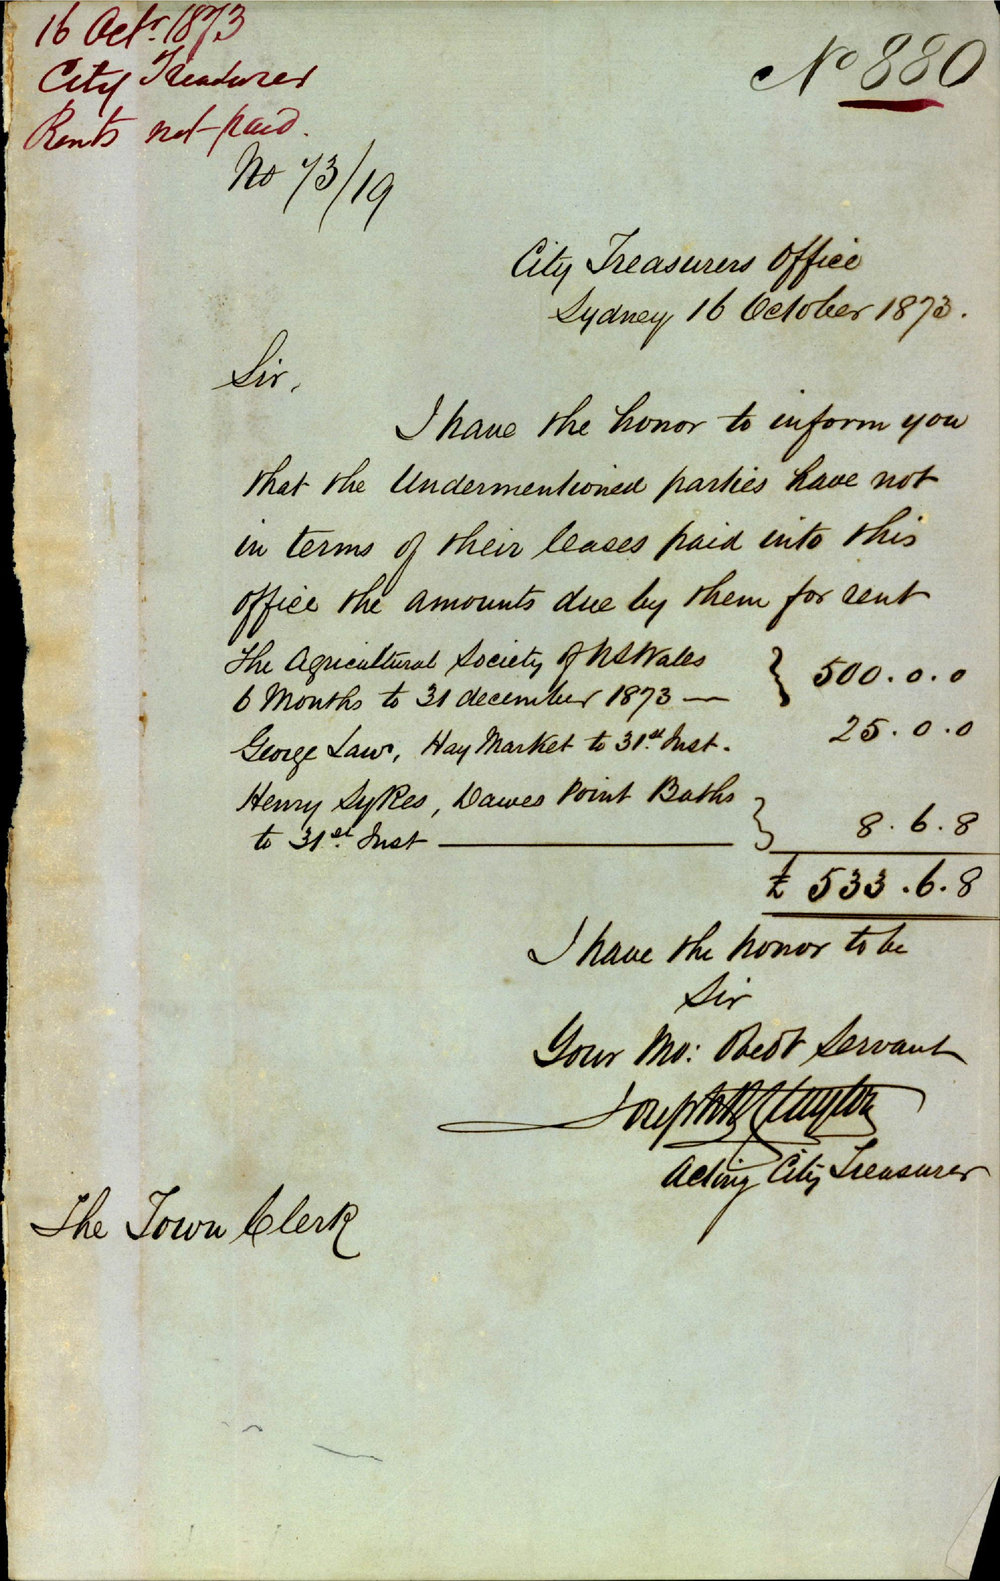 16 Octr. 1873
City Treasurer
Rents not paid.
No 880
No 73/19
City Treasurers Office
Sydney 16 October 1873.
Sir,
I have the honor to inform you
that the Undermentioned parties have not
in terms of their leases paid into this
office the amounts due by them for rent
The Agricultural Society of NSWales
6 Months to 31 december 1873 — } 500.0.0
George Law, Hay Market to 31st Inst. 25.0.0
Henry Sykes, Dawes Point Baths
to 31st. Inst — } 8.6.8
£ 533.6.8
I have the honor to be
Sir
Your Mo: Obedt Servant
Joseph Clayton
Acting City Treasurer
The Town Clerk